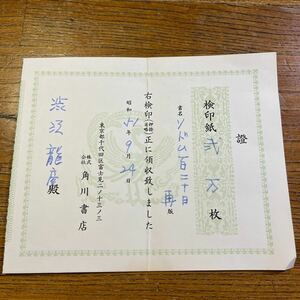 證
検印紙 弐万 枚
書名 ソドム百二十日 再版
右検印(押捺省略)正に領収致しました
昭和51年9月24日
東京都千代田区富士見二ノ十三ノ三
株式会社 角川書店
澁澤龍彦殿